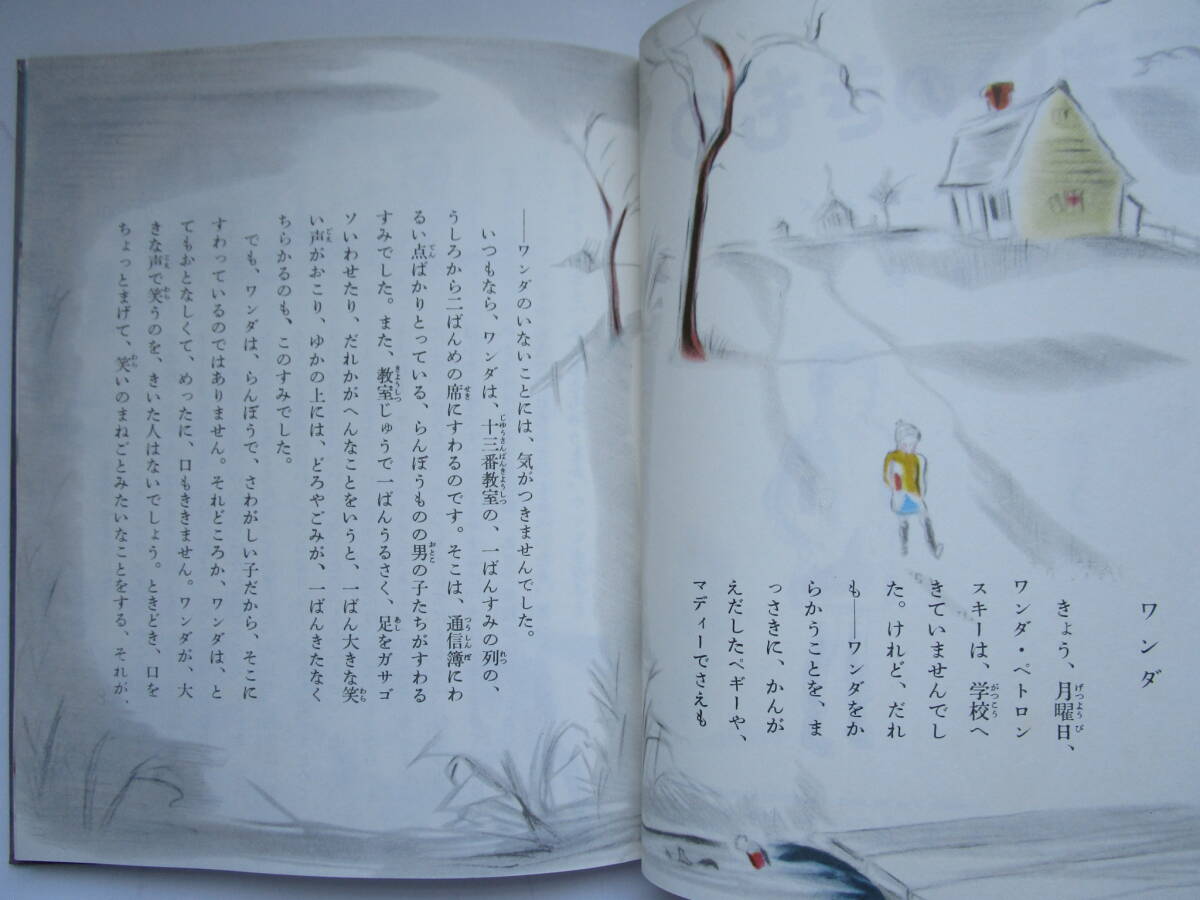 ワンダ
きょう、月曜日、
ワンダ・ペトロン
スキーは、学校へ
きていませんでし
た。けれど、だれ
も——ワンダをか
らかうことを、ま
っさきに、かんが
えだしたペギーや、
マディーでさえも
——ワンダのいないことには、気がつきませんでした。
いつもなら、ワンダは、十三番教室の、一ばんすみの列の、
うしろから二ばんめの席にすわるのです。そこは、通信簿にわ
るい点ばかりとっている、らんぼうものの男の子たちがすわる
すみでした。また、教室じゅうで一ばんうるさく、足をガサゴ
ソいわせたり、だれかがへんなことをいうと、一ばん大きな笑
い声がおこり、ゆかの上には、どろやごみが、一ばんきたなく
ちらかるのも、このすみでした。
でも、ワンダは、らんぼうで、さわがしい子だから、そこに
すわっているのではありません。それどころか、ワンダは、と
てもおとなしくて、めったに、口もききません。ワンダが、大
きな声で笑うのを、きいた人はないでしょう。ときどき、口を
ちょっとまげて、笑いのまねごとみたいなことをする、それが、